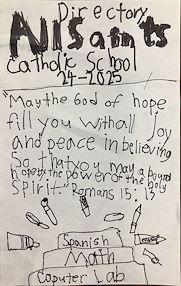 Directory
All Saints
Catholic School
24-2025
"May the God of hope
fill you with all joy
and peace in believing
So that you may abound
hope by the power of the holy
Spirit" Romans 15:13
Spanish
Math
Coputer Lab